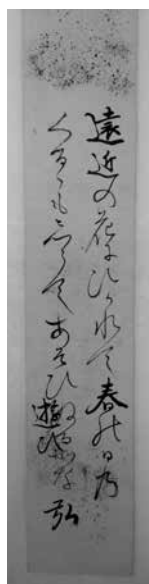 遠近の花にひかれて春の日乃
くるゝもしらてあそひぬるかな 弘